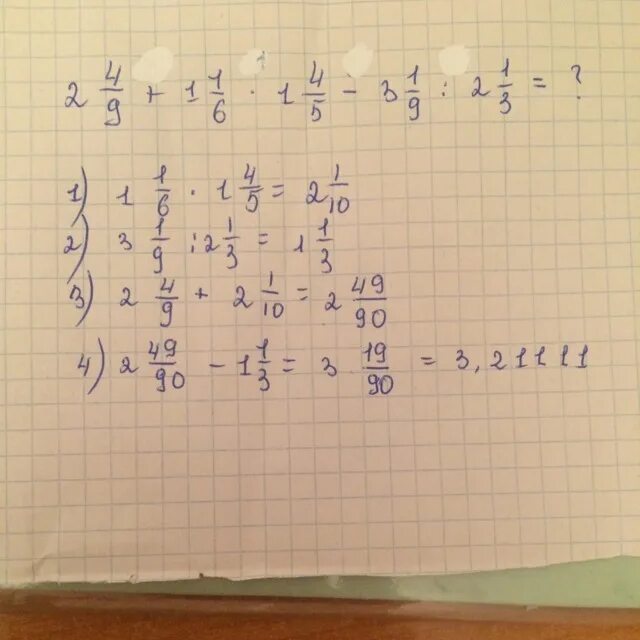 2 4/9 + 1 1/6 · 1 4/5 - 3 1/9 : 2 1/3 = ?
1) 1 1/6 · 1 4/5 = 2 1/10
2) 3 1/9 : 2 1/3 = 1 1/3
3) 2 4/9 + 2 1/10 = 2 49/90
4) 2 49/90 - 1 1/3 = 3 19/90 = 3,21111